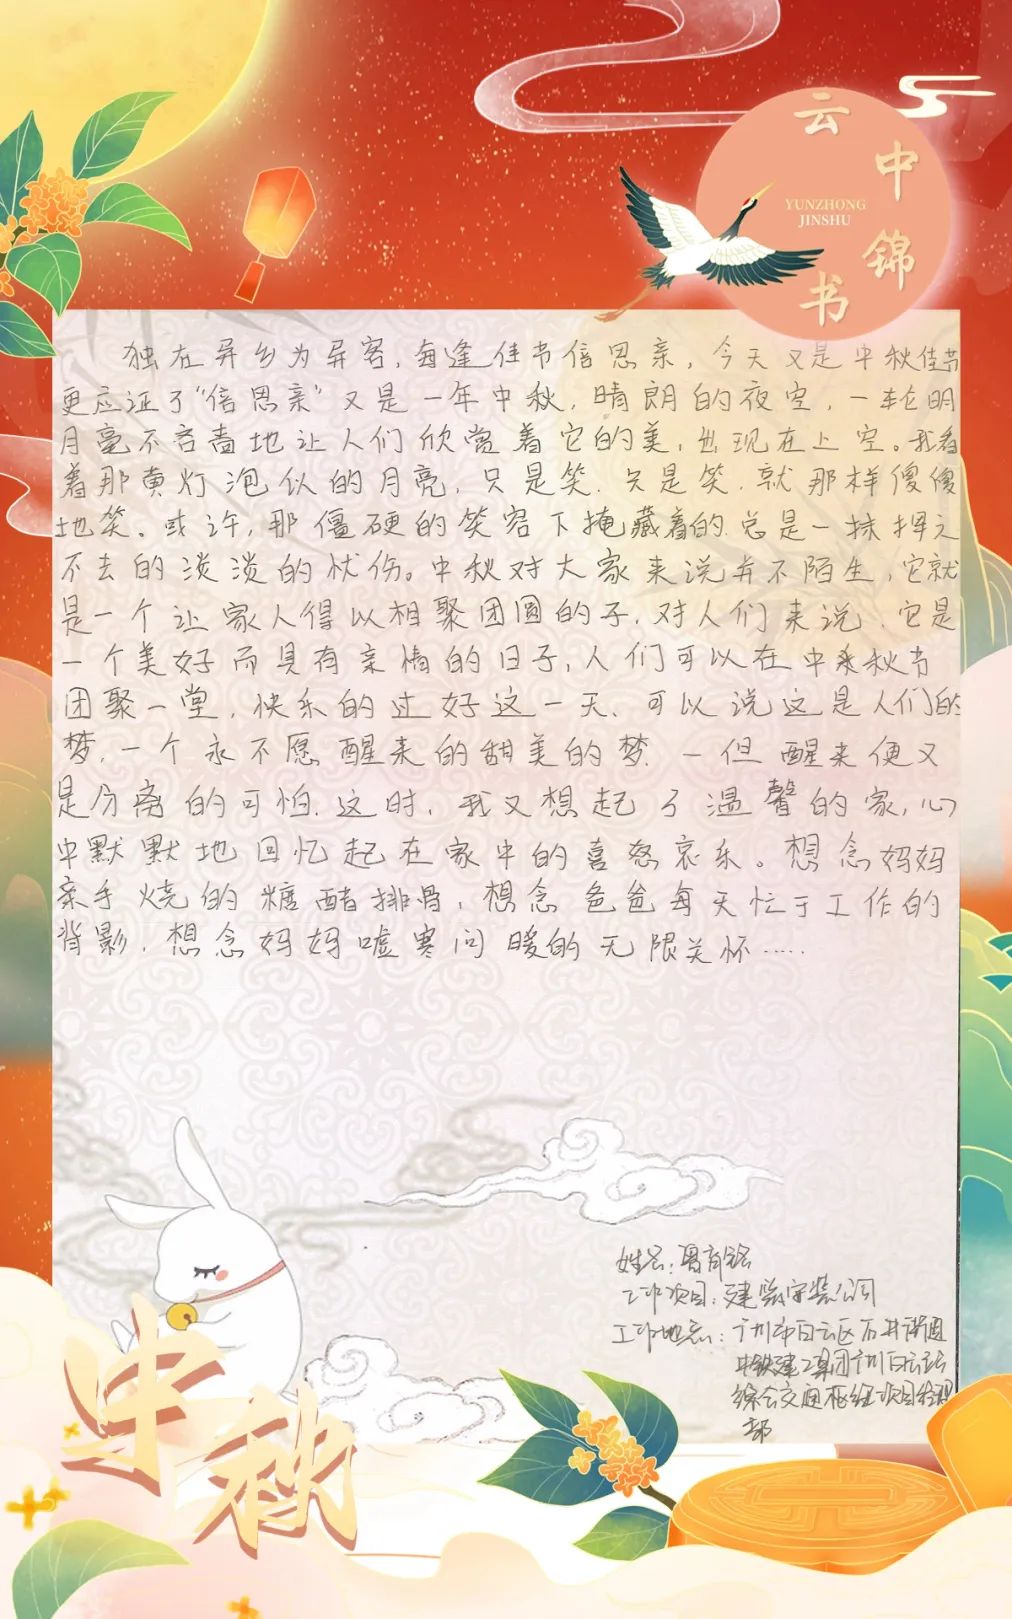 云中锦书
YUNZHONG
JINSHU
独在异乡为异客，每逢佳节倍思亲，今天又是中秋佳节
更应证了“倍思亲”又是一年中秋，晴朗的夜空，一轮明
月毫不吝啬地让人们欣赏着它的美，出现在上空。我看
着那黄灯泡似的月亮，只是笑，只是笑，就那样傻傻
地笑。或许，那僵硬的笑容下掩藏着的总是一抹挥之
不去的淡淡的忧伤。中秋对大家来说并不陌生，它就
是一个让家人得以相聚团圆的子，对人们来说，它是
一个美好而具有亲情的日子，人们可以在中秋节
团聚一堂，快乐的过好这一天，可以说这是人们的
梦，一个永不愿醒来的甜美的梦 一但醒来便又
是分离的可怕，这时，我又想起了温馨的家，心
中默默地回忆起在家中的喜怒哀乐。想念妈妈
亲手烧的糖醋排骨，想念爸爸每天忙于工作的
背影，想念妈妈嘘寒问暖的无限关怀……
姓名：
工作项目：建筑安装公司
工作地点：广州市白云区石井街道
中铁建工集团广州白云站
综合交通枢纽项目经理
部
中秋